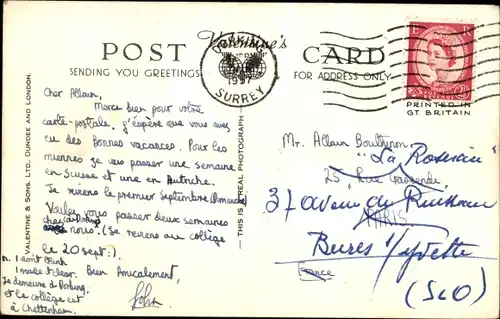 Valentine's
POST CARD
SENDING YOU GREETINGS
FOR ADDRESS ONLY
DORKING
1957
SURREY
E R
PRINTED IN
GT. BRITAIN
VALENTINE & SONS. LTD., DUNDEE AND LONDON.
THIS IS A REAL PHOTOGRAPH
Cher Allain,
Merci bien pour votre
carte-postale. J'éspère que vous avez
eu des bonnes vacances. Pour les
miennes je vais passer une semaine
en Suisse et une en Autriche.
Je reviens le premier Septembre (Dimanche)
Voulez vous passer deux semaines
chez nous. (Je reviens au collège
le 20 sept:).
I don't think
I made it clear. Bien Amicalement,
Je demeure à Dorking
et le collège est
à Cheltenham.
John
Mr. Allain
"La
25, Rue
37 avenue du
PARIS
Bures s/yvette
France
(S&O)